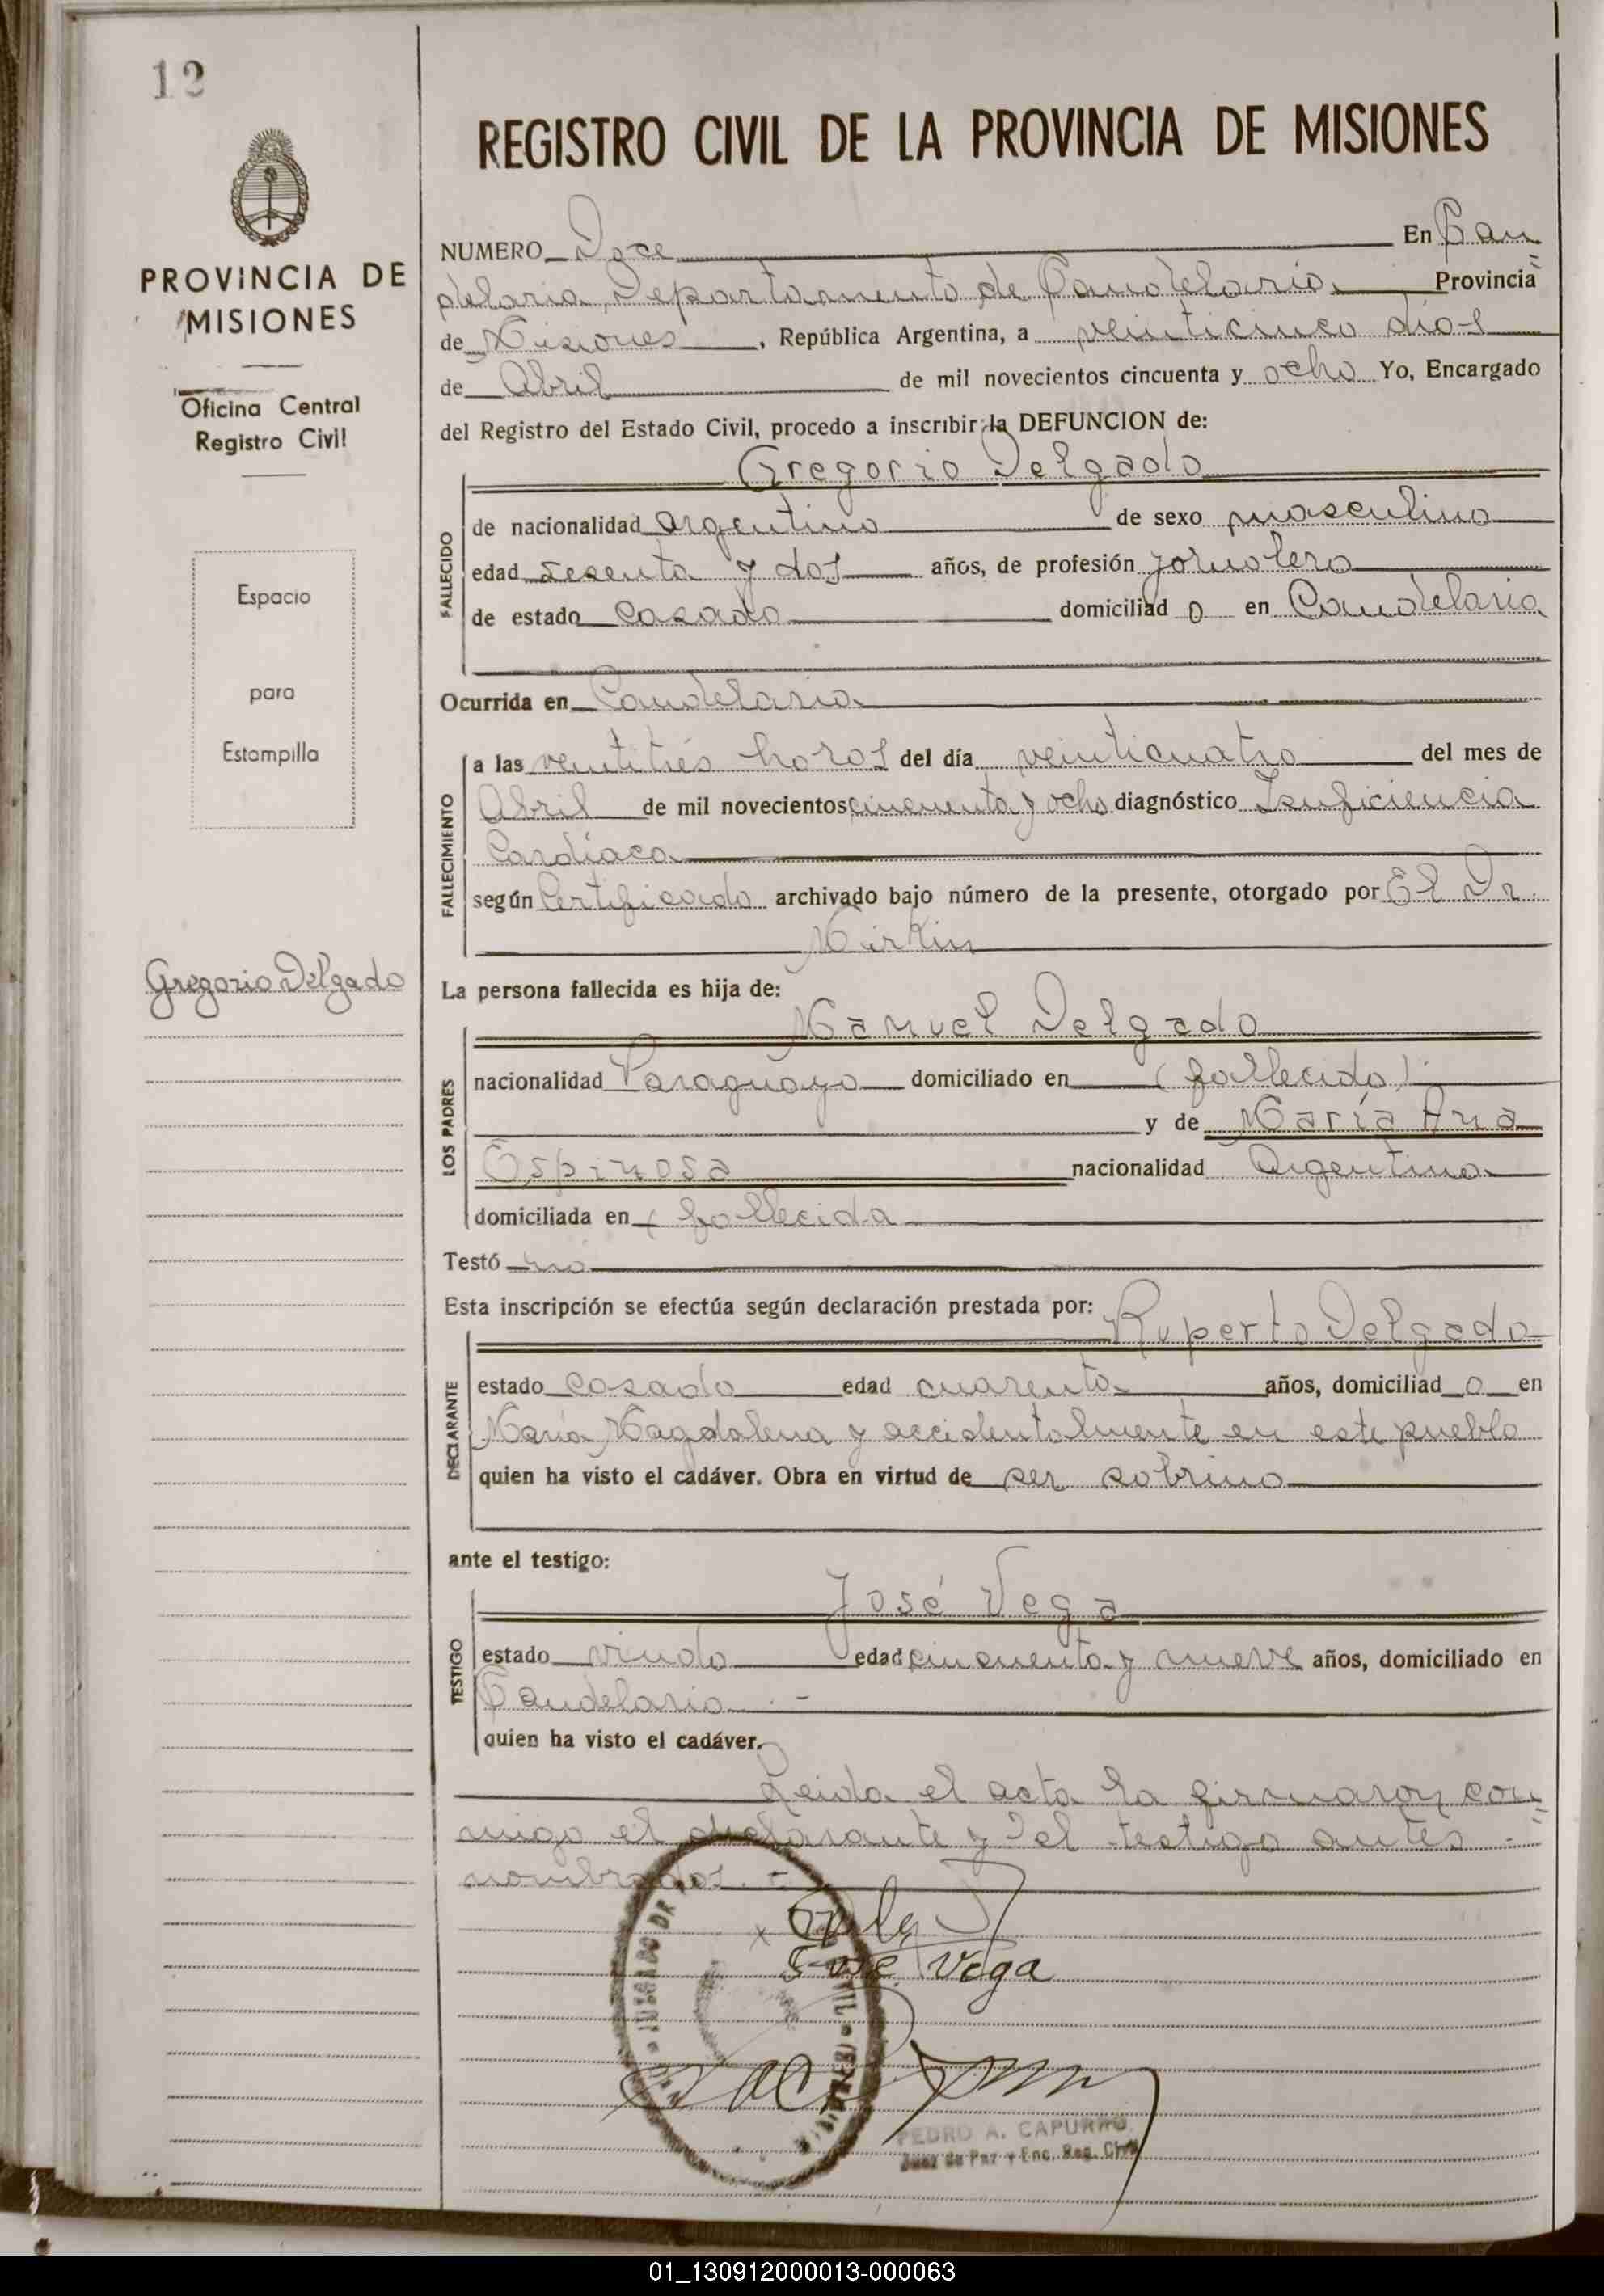 12
PROVINCIA DE
MISIONES
Oficina Central
Registro Civil
Espacio
para
Estampilla
Gregorio Delgado
REGISTRO CIVIL DE LA PROVINCIA DE MISIONES
NUMERO Doce En Can
delaria, Departamento de Candelaria Provincia
de Misiones, República Argentina, a veinticinco dias
de Abril de mil novecientos cincuenta y ocho Yo, Encargado
del Registro del Estado Civil, procedo a inscribir la DEFUNCION de:
Gregorio Delgado
FALLECIDO
de nacionalidad argentino de sexo masculino
edad sesenta y dos años, de profesión jornalero
de estado casado domiciliad o en Candelaria
Ocurrida en Candelaria
FALLECIMIENTO
a las veintitrés horas del día veinticuatro del mes de
Abril de mil novecientos cincuenta y ocho diagnóstico Insuficiencia
Cardíaca
según Certificado archivado bajo número de la presente, otorgado por El Dr.
Mirkin
La persona fallecida es hija de:
LOS PADRES
Manuel Delgado
nacionalidad Paraguayo domiciliado en (fallecido)
y de María Ana
Espinosa nacionalidad Argentina
domiciliada en (fallecida
Testó no
Esta inscripción se efectúa según declaración prestada por:
Ruperto Delgado
DECLARANTE
estado casado edad cuarenta años, domiciliad o en
María Magdalena y accidentalmente en este pueblo
quien ha visto el cadáver. Obra en virtud de ser sobrino
ante el testigo:
José Vega
TESTIGO
estado viudo edad cincuenta y nueve años, domiciliado en
Candelaria.-
quien ha visto el cadáver.
Leida el acta la firmaron con
migo el declarante y el testigo antes
nombrados.-
José Vega
JUZGADO DE
PEDRO A. CAPURRO
Juez de Paz y Enc. Reg. Civil
01_130912000013-000063